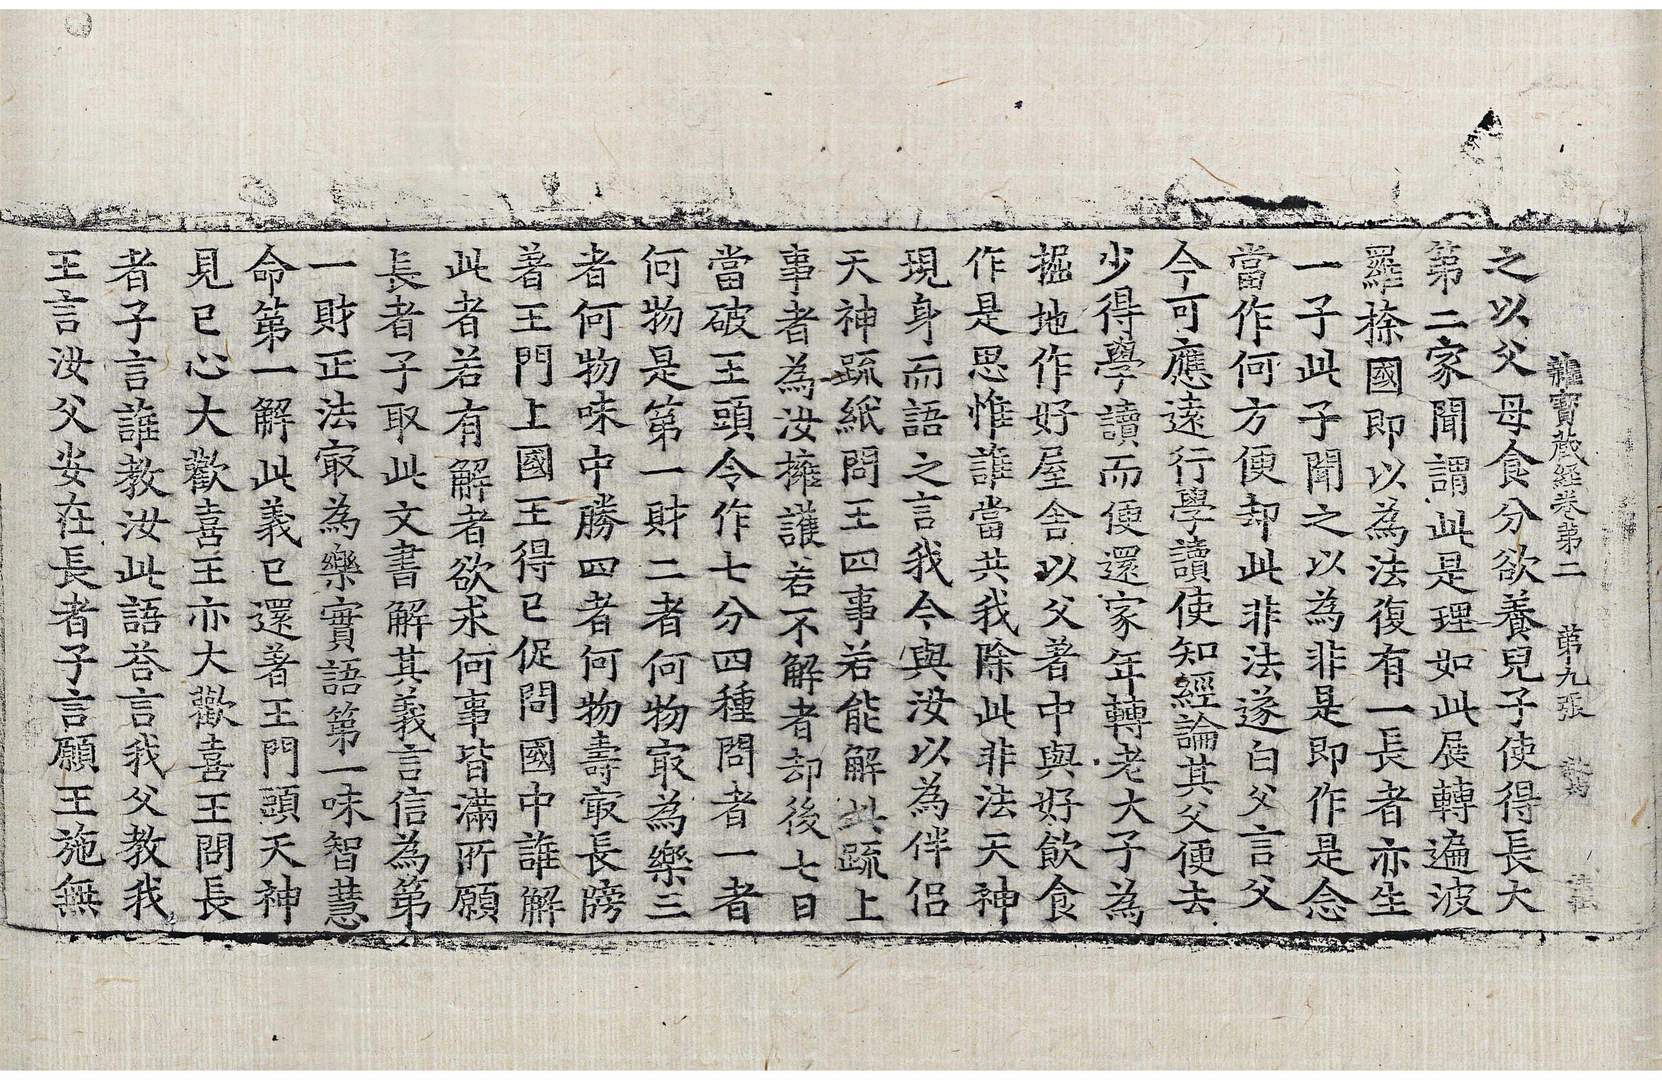 雜寶藏經卷第二　第九張
之以父母食分欲養兒子使得長大
第二家聞謂此是理如此展轉遍波
羅㮈國即以為法復有一長者亦生
一子此子聞之以為非是即作是念
當作何方便却此非法遂白父言父
今可應遠行學讀使知經論其父便去
少得學讀而便還家年轉老大子為
掘地作好屋舍以父著中與好飲食
作是思惟誰當共我除此非法天神
現身而語之言我今與汝以為伴侶
天神䟽紙問王四事若能解此䟽上
事者為汝擁護若不解者却後七日
當破王頭令作七分四種問者一者
何物是第一財二者何物㝡為樂三
者何物味中勝四者何物壽㝡長牓
著王門上國王得已促問國中誰解
此者若有解者欲求何事皆滿所願
長者子取此文書解其義言信為第
一財正法㝡為樂實語第一味智慧
命第一解此義已還著王門頭天神
見已心大歡喜王亦大歡喜王問長
者子言誰教汝此語答言我父教我
王言汝父安在長者子言願王施無